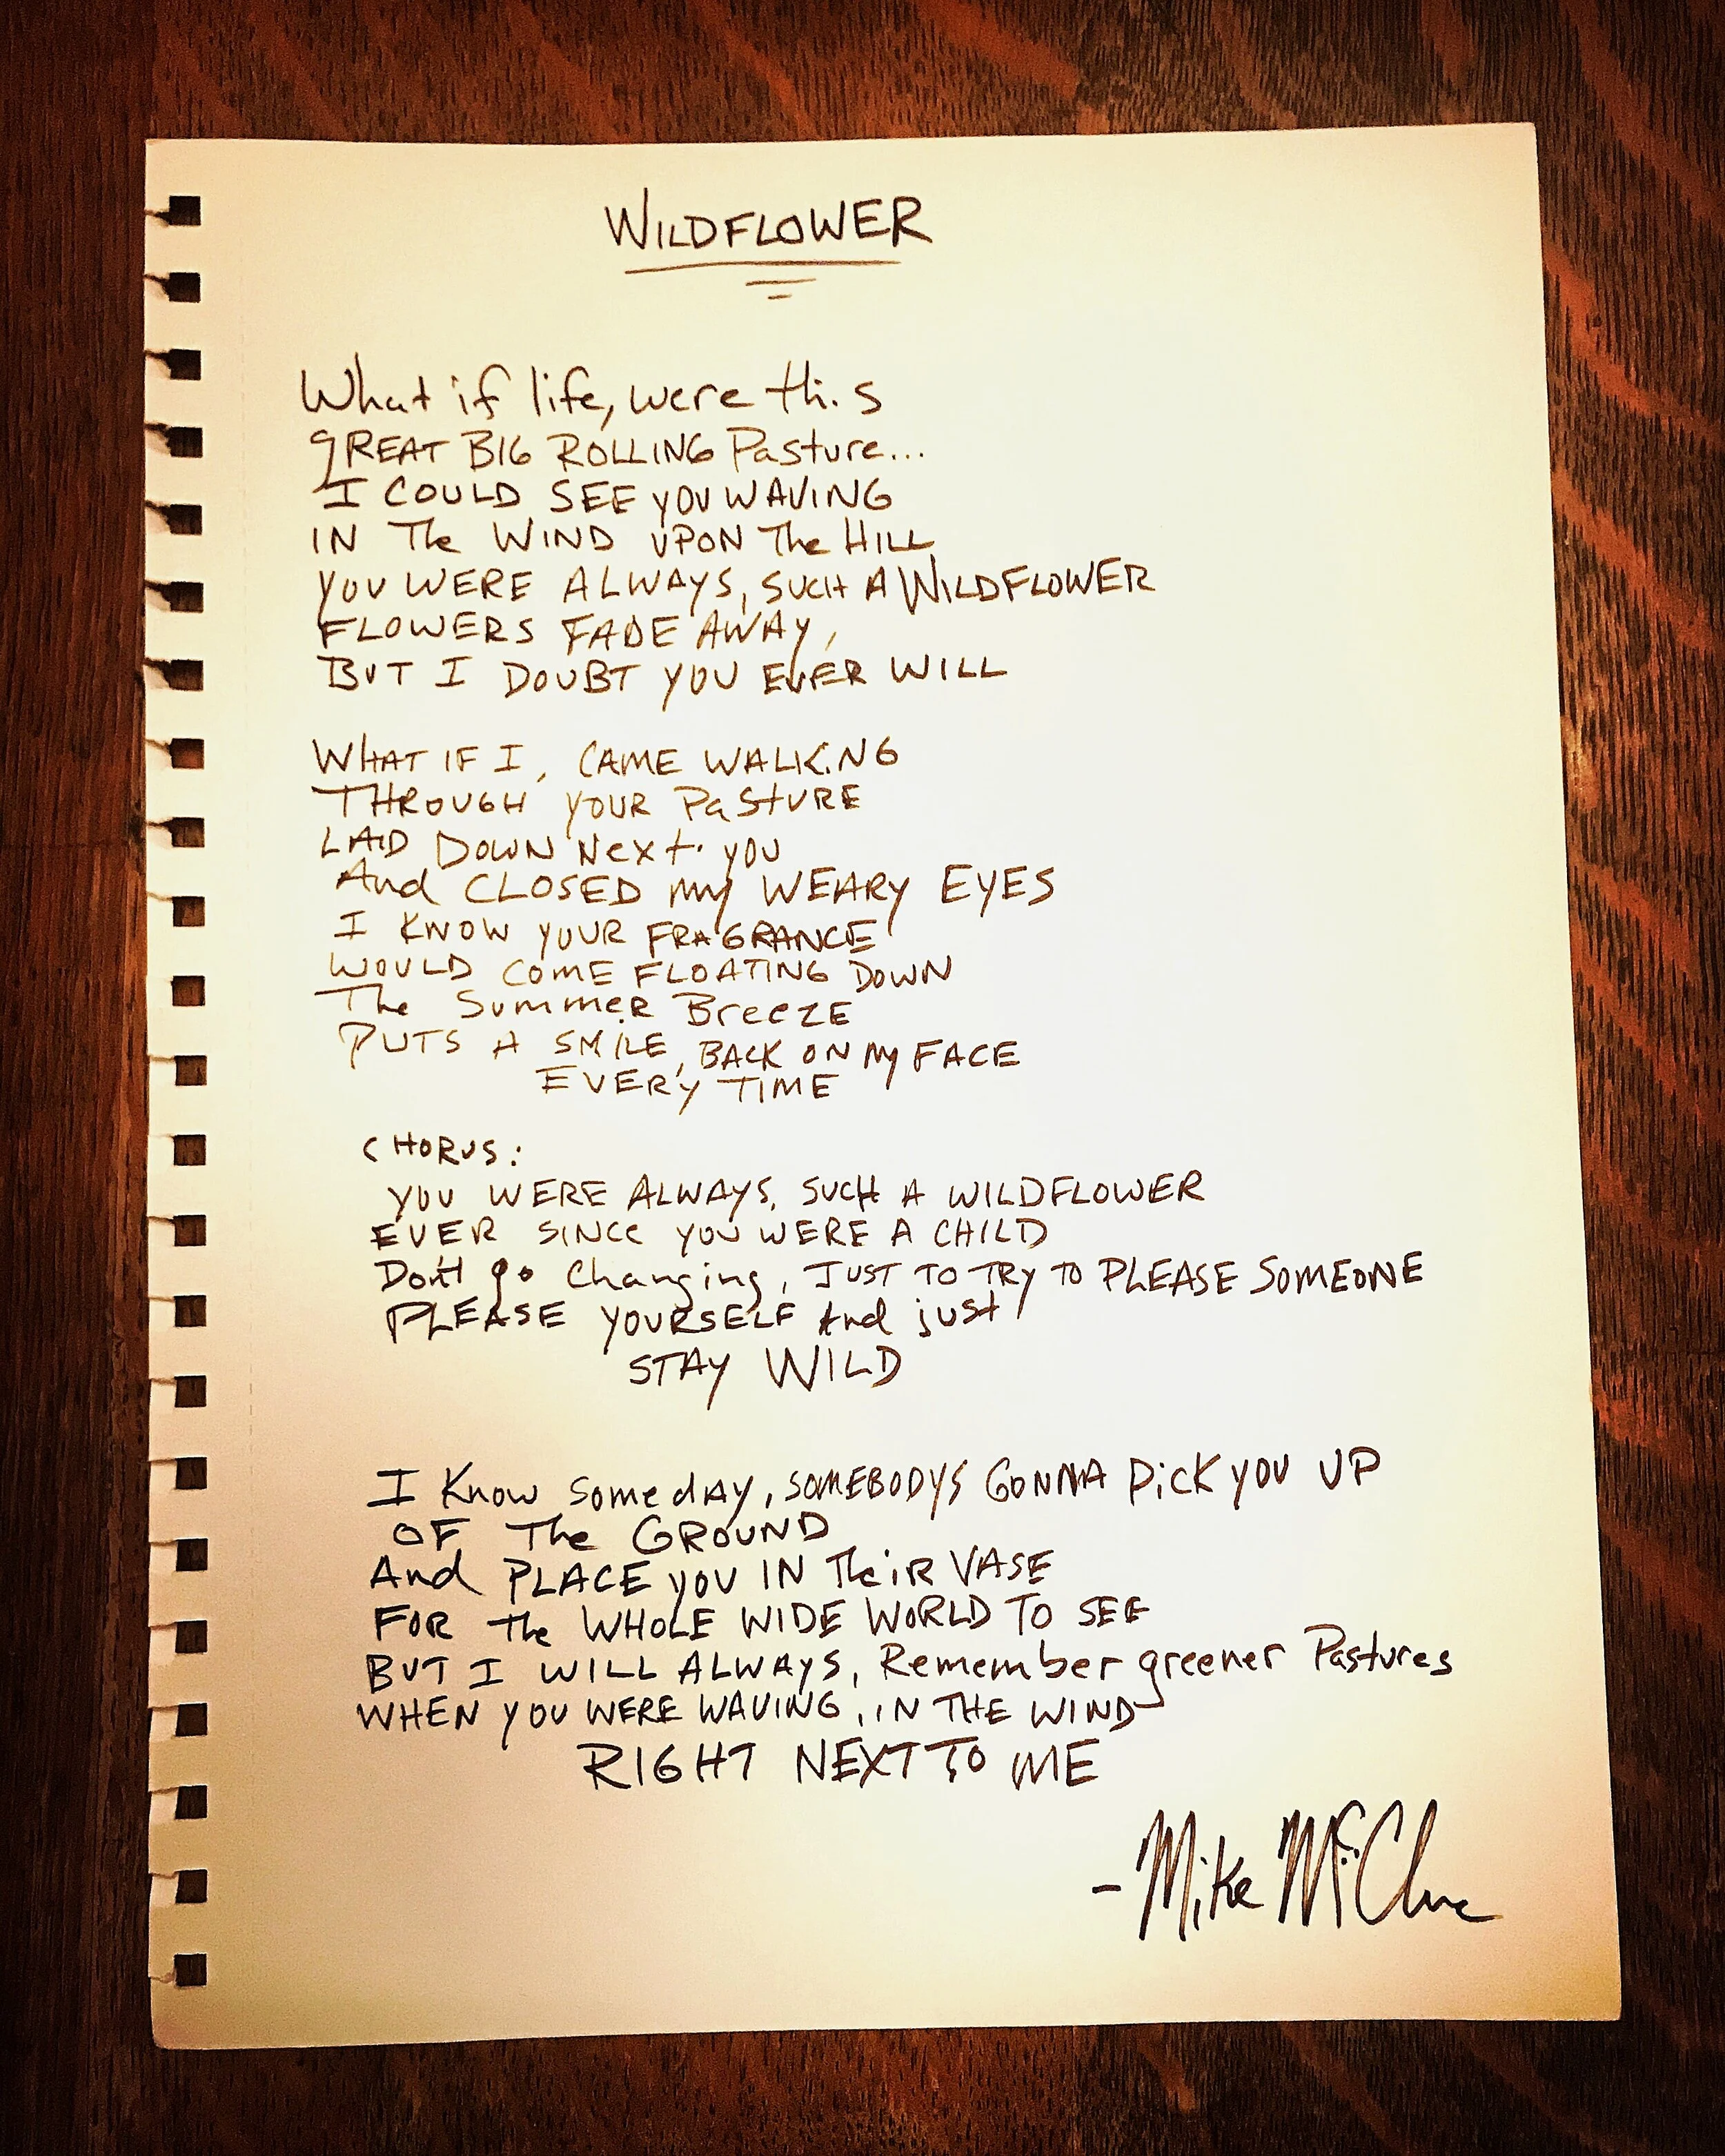 WILDFLOWER
What if life, were this
gREAT BIG ROLLING Pasture...
I COULD SEE YOU WAVING
IN The WIND UPON The HILL
YOU WERE ALWAYS, SUCH A WILDFLOWER
FLOWERS FADE AWAY,
BUT I DOUBT YOU EVER WILL
WHAT IF I, CAME WALKING
THROUGH YOUR PaStURE
LAID DOWN Next. you
And CLOSED my WEARY EYES
I KNOW YOUR FRAGRANCE
WOULD COME FLOATING DOWN
The SummeR BreeZE
PUTS A SMILE, BACK ON My FACE
EVERY TIME
CHORUS:
YOU WERE ALWAYS, SUCH A WILDFLOWER
EVER SINCE YOU WERE A CHILD
Don't go Changing, JUST TO TRY TO PLEASE SOMEONE
PLEASE YOURSELF And just
STAY WILD
I Know SomedAy, SOMEBODYS GONNA PicK YOU UP
OF The GROUND
And PLACE YOU IN TheiR VASE
FOR the WHOLE WIDE WORLD TO SEE
BUT I WILL ALWAYS, Remember greener Pastures
WHEN YOU WERE WAVING, IN THE WIND
RIGHT NEXT TO ME
- Mike McClure